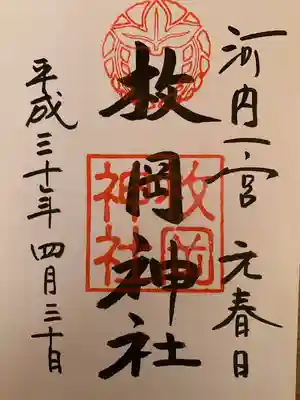 河内一ノ宮 元春日
枚岡神社
枚岡
神社
平成三十年 四月三十日